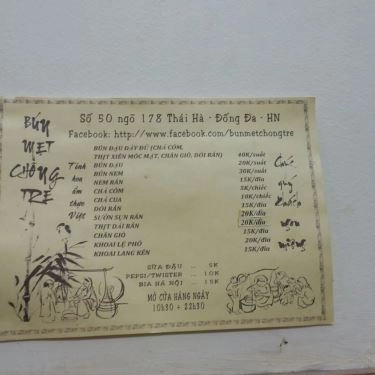 BÚN
MẸT
CHÕNG
TRE
Số 50 ngõ 178 Thái Hà - Đống Đa - HN
Facebook: http://www.facebook.com/bunmetchongtre
Tinh hoa ẩm thực Việt
BÚN ĐẬU ĐẦY ĐỦ (CHẢ CỐM,
THỊT XIÊN MÓC MẬT, CHÂN GIÒ, DỒI RÁN) 40K/suất
BÚN ĐẬU 20K/suất
BÚN NEM 30K/suất
NEM RÁN 15K/đĩa
CHẢ CỐM 5K/chiếc
CHẢ CUA 10K/chiếc
DỒI RÁN 15K/đĩa
SƯỜN SỤN RÁN 20K/đĩa
THỊT DẢI RÁN 20K/đĩa
CHÂN GIÒ 15K/đĩa
KHOAI LỆ PHỐ 20K/đĩa
KHOAI LANG KÉN 15K/đĩa
Chúc
quý
khách
ngon
miệng
SỮA ĐẬU .. 5K
PEPSI/TWISTER ... 10K
BIA HÀ NỘI .. 15K
MỞ CỬA HÀNG NGÀY
10h30 - 22h30